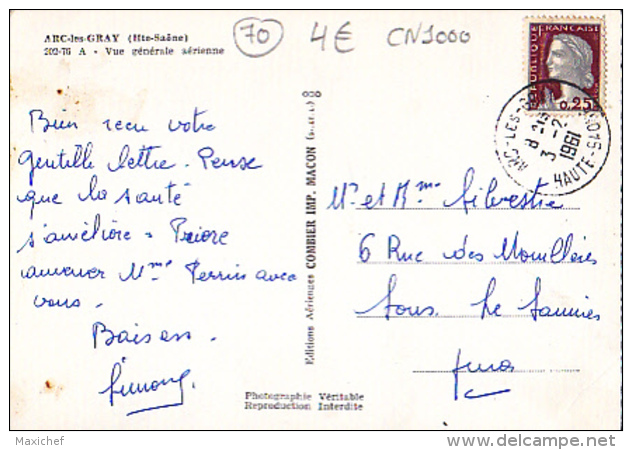 ARC-les-GRAY (Hte-Saône)
202-76 A - Vue générale aérienne
70
4€
CN1000
RÉPUBLIQUE FRANÇAISE
0,25
ARC-LES-GRAY
HAUTE-SAONE
3-2
1961
Bien reçu votre
gentille lettre. Pense
que la santé
s'améliore. Prière
amener Mme Perrin avec
vous.
Baisers.
Simone
Editions Aériennes COMBIER IMP. MACON (S.-et-L.)
Mr et Mme Silvestre
6 Rue des Mouillères
Lons Le Saunier
Jura
Photographie Véritable
Reproduction Interdite
Maxichef
www.delcampe.net